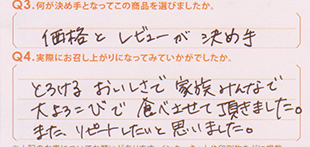 Q3.何が決め手となってこの商品を選びましたか。
価格とレビューが決め手
Q4.実際にお召し上がりになってみていかがでしたか。
とろけるおいしさで家族みんなで
大よろこびで食べさせて頂きました。
また、リピートしたいと思いました。